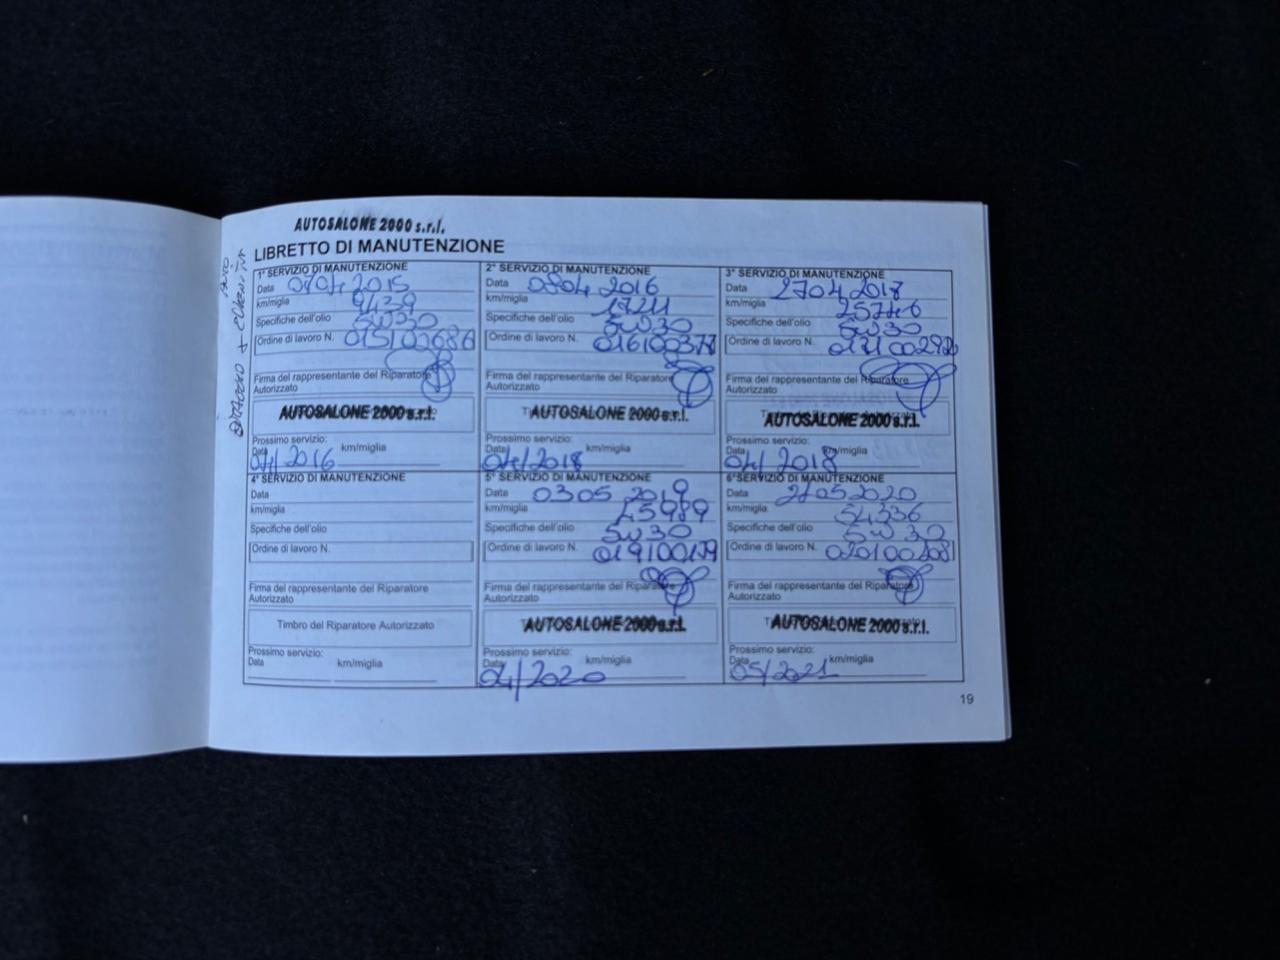 AUTOSALONE 2000 s.r.l.
LIBRETTO DI MANUTENZIONE
1° SERVIZIO DI MANUTENZIONE
Data 2015
km/miglia
Specifiche dell'olio 5W30
Ordine di lavoro N.
Firma del rappresentante del Riparatore
Autorizzato
AUTOSALONE 2000 s.r.l.
Prossimo servizio:
Data km/miglia
04/2016
2° SERVIZIO DI MANUTENZIONE
Data 0804 2016
km/miglia 17211
Specifiche dell'olio 5W30
Ordine di lavoro N.
Firma del rappresentante del Riparatore
Autorizzato
AUTOSALONE 2000 s.r.l.
Prossimo servizio:
Data km/miglia
04/2018
3° SERVIZIO DI MANUTENZIONE
Data 2704
km/miglia 25746
Specifiche dell'olio 5W30
Ordine di lavoro N.
Firma del rappresentante del Riparatore
Autorizzato
AUTOSALONE 2000 s.r.l.
Prossimo servizio:
Data km/miglia
04/2018
4° SERVIZIO DI MANUTENZIONE
Data
km/miglia
Specifiche dell'olio
Ordine di lavoro N.
Firma del rappresentante del Riparatore
Autorizzato
Timbro del Riparatore Autorizzato
Prossimo servizio:
Data km/miglia
5° SERVIZIO DI MANUTENZIONE
Data 03 05 2019
km/miglia 45989
Specifiche dell'olio 5W30
Ordine di lavoro N.
Firma del rappresentante del Riparatore
Autorizzato
AUTOSALONE 2000 s.r.l.
Prossimo servizio:
Data km/miglia
04/2020
6° SERVIZIO DI MANUTENZIONE
Data 27052020
km/miglia 54336
Specifiche dell'olio 5W30
Ordine di lavoro N.
Firma del rappresentante del Riparatore
Autorizzato
AUTOSALONE 2000 s.r.l.
Prossimo servizio:
Data km/miglia
05/2021
19